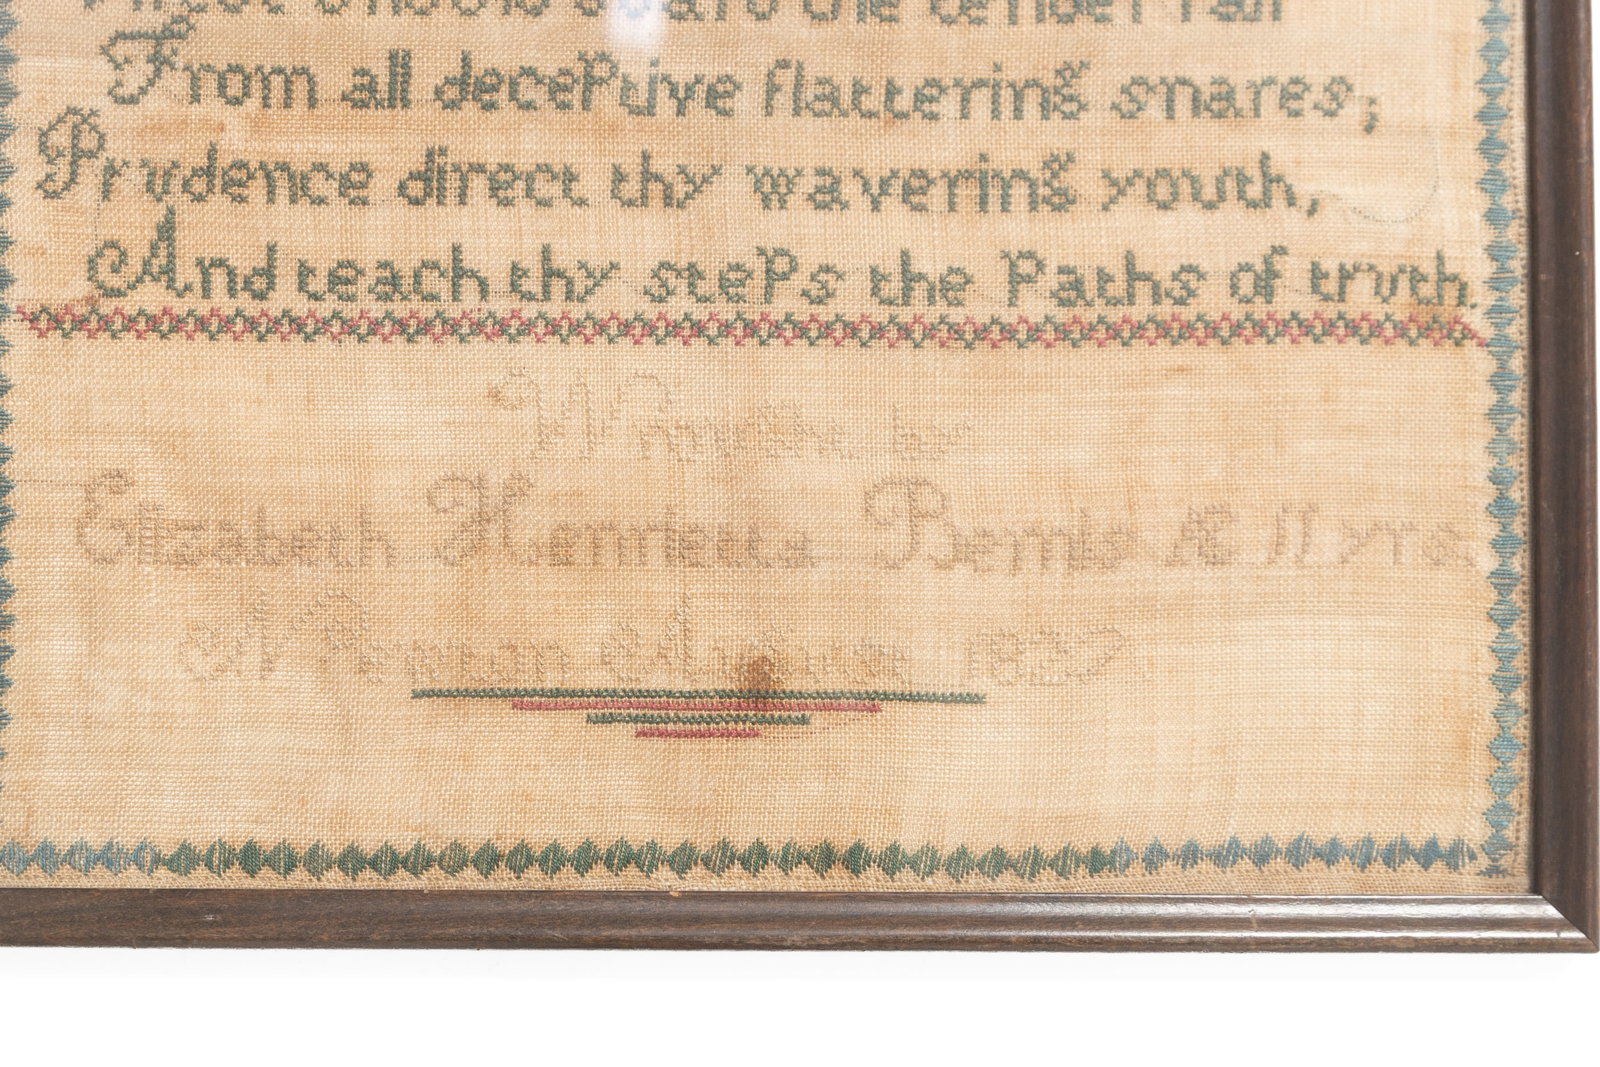 the tender fair
From all deceptive flattering snares;
Prudence direct thy wavering youth,
And teach thy steps the Paths of truth.
Wrought by
Elizabeth Henrietta Bemis Æ 11 yrs.
August 182